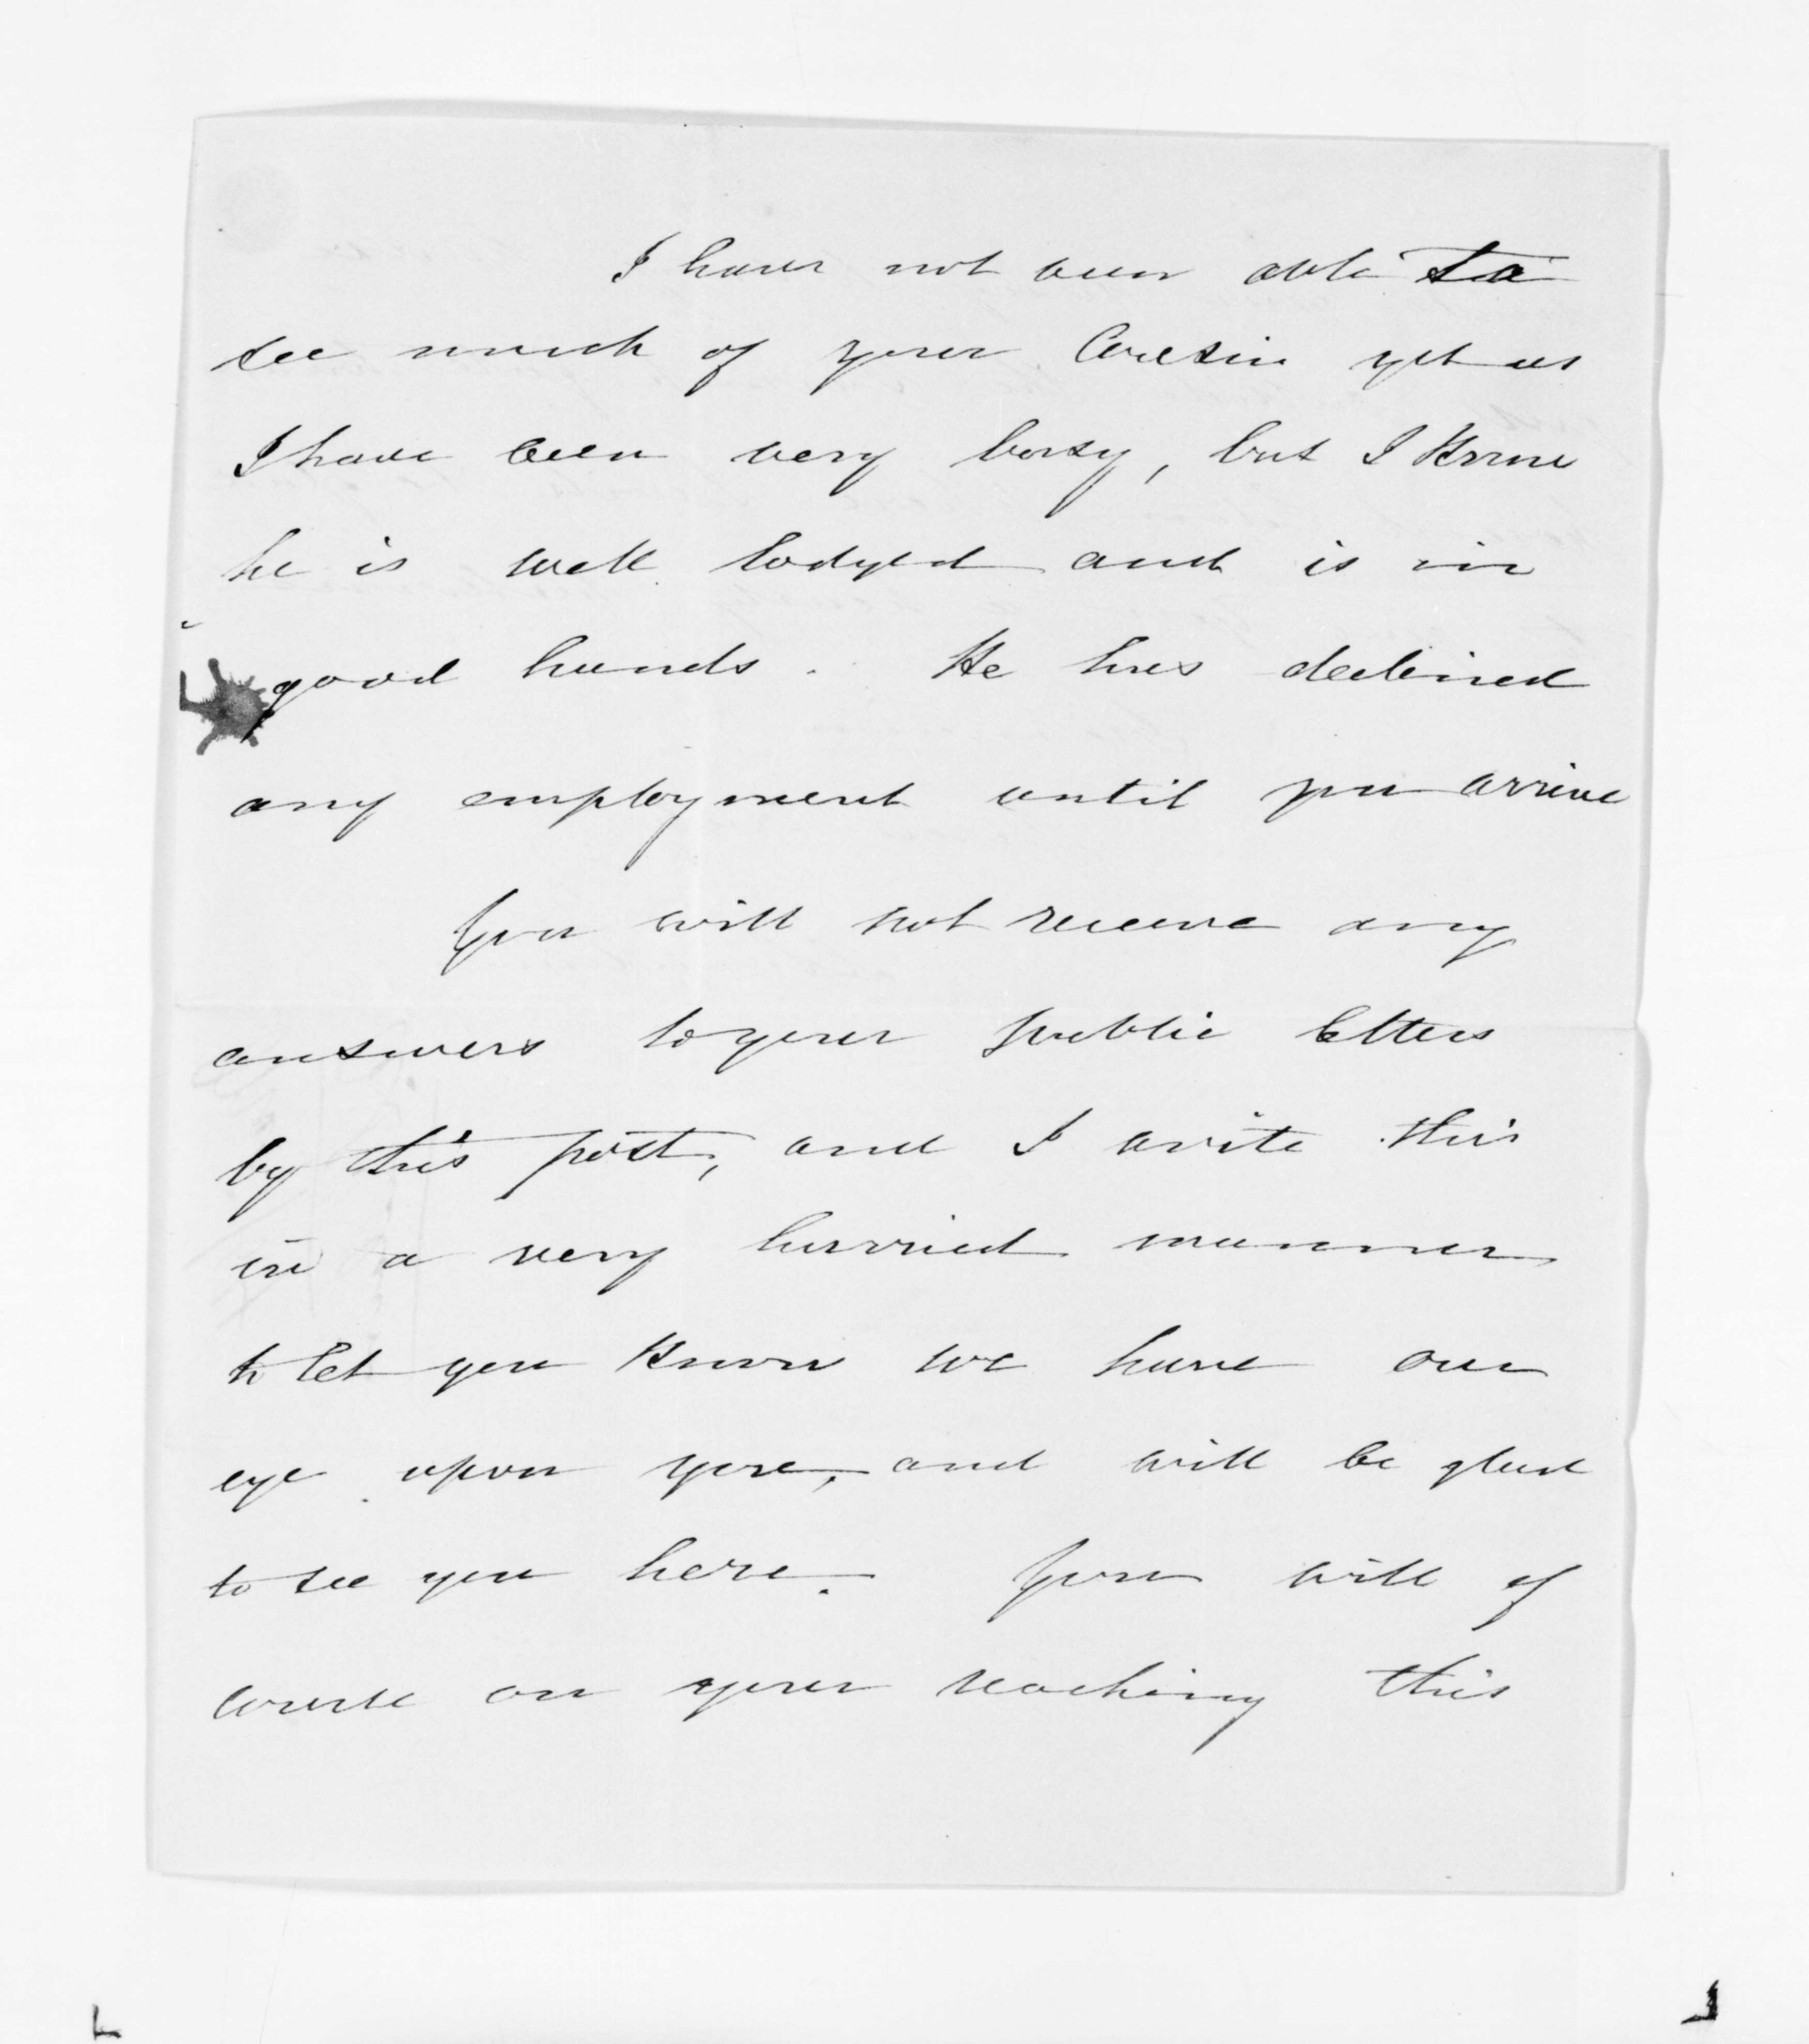 I have not been able to
see much of your Cousin yet as
I have been very busy, but I know
he is well lodged and is in
good hands. He has declined
any employment until you arrive
You will not receive any
answers to your public letters
by this post, and I write this
in a very hurried manner
to let you know we have our
eye upon you, and will be glad
to see you here. You will of
course on your reaching this